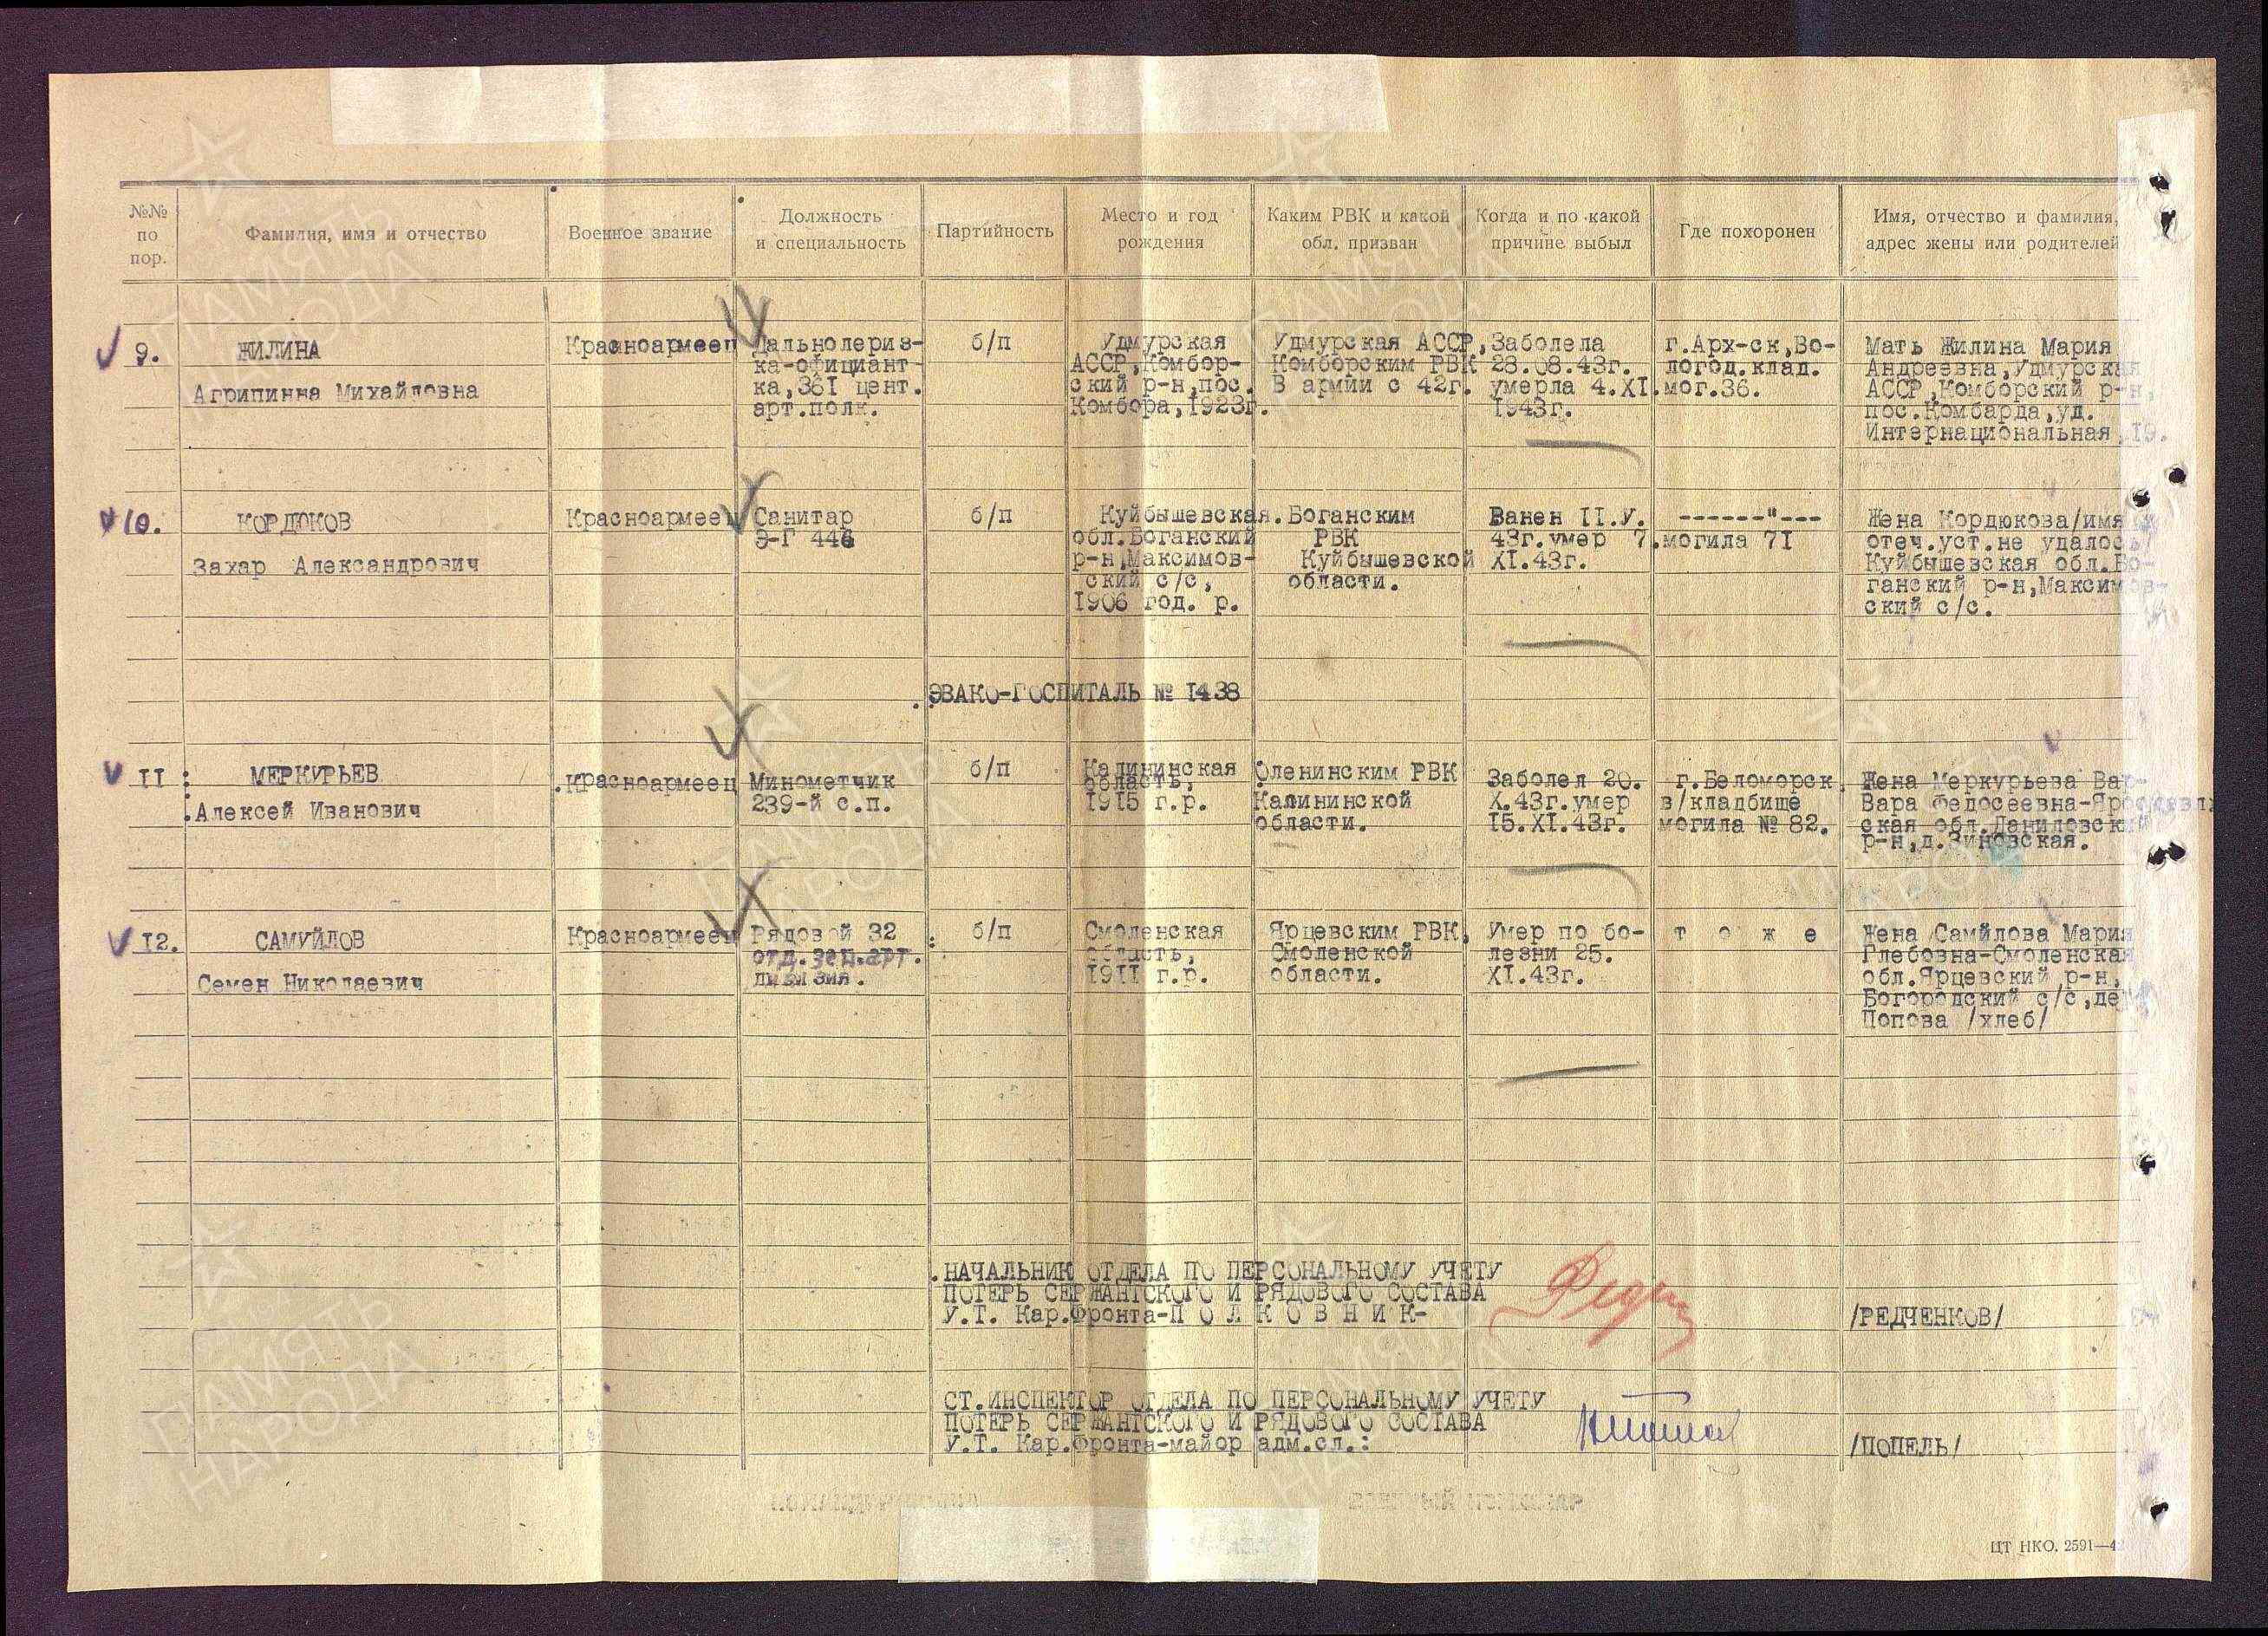 №№ по пор.
Фамилия, имя и отчество
Военное звание
Должность и специальность
Партийность
Место и год рождения
Каким РВК и какой обл. призван
Когда и по какой причине выбыл
Где похоронен
Имя, отчество и фамилия, адрес жены или родителей
9.
ЖИЛИНА
Агрипинна Михайловна
Красноармеец
Дальномериз-
ка-официант-
ка,361 цент.
арт.полк.
б/п
Удмурская
АССР,Комбор-
ский р-н,пос.
Комбора,1923г.
Удмурская АССР,
Комборским РВК
В армии с 42г.
Заболела
28.08.43г.
умерла 4.XI.
1943г.
г.Арх-ск,Во-
логод.клад.
мог.36.
Мать Жилина Мария
Андреевна,Удмурская
АССР,Комборский р-н,
пос.Комбарда,ул.
Интернациональная,19.
10.
КОРДЮКОВ
Захар Александрович
Красноармеец
Санитар
Э-Г 446
б/п
Куйбышевская
обл.Боганский
р-н,Максимов-
ский с/с,
1906 год. р.
Боганским
РВК
Куйбышевской
области.
Ранен II.У.
43г.умер 7.
XI.43г.
------"---
могила 71
Жена Кордюкова/имя и
отеч.уст.не удалось/
Куйбышевская обл.Бо-
ганский р-н,Максимов-
ский с/с.
ЭВАКО-ГОСПИТАЛЬ № 1438
II
МЕРКУРЬЕВ
Алексей Иванович
Красноармеец
Минометчик
239-й с.п.
б/п
Калининская
область,
1915 г.р.
Оленинским РВК
Калининской
области.
Заболел 20.
X.43г.умер
15.XI.43г.
г.Беломорск
в/кладбище
могила № 82.
Жена Меркурьева Вар-
вара Федосеевна-Яросдавл.
ская обл.Даниловский
р-н,д.Зиновская.
12.
САМУЙЛОВ
Семен Николаевич
Красноармеец
Рядовой 32
отд.зен.арт.
дивизия.
б/п
Смоленская
область,
1911 г.р.
Ярцевским РВК,
Смоленской
области.
Умер по бо-
лезни 25.
XI.43г.
т о ж е
Жена Самйлова Мария
Глебовна-Смоленская
обл.Ярцевский р-н,
Богородский с/с,де
Попова /хлеб/
НАЧАЛЬНИК ОТДЕЛА ПО ПЕРСОНАЛЬНОМУ УЧЕТУ
ПОТЕРЬ СЕРЖАНТСКОГО И РЯДОВОГО СОСТАВА
У.Т. Кар.Фронта-П О Л К О В Н И К-
/РЕДЧЕНКОВ/
СТ.ИНСПЕКТОР ОТДЕЛА ПО ПЕРСОНАЛЬНОМУ УЧЕТУ
ПОТЕРЬ СЕРЖАНТСКОГО И РЯДОВОГО СОСТАВА
У.Т. Кар.Фронта-майор адм.сл.:
/ПОПЕЛЬ/
ЦТ НКО. 2591—42
ПАМЯТЬ НАРОДА